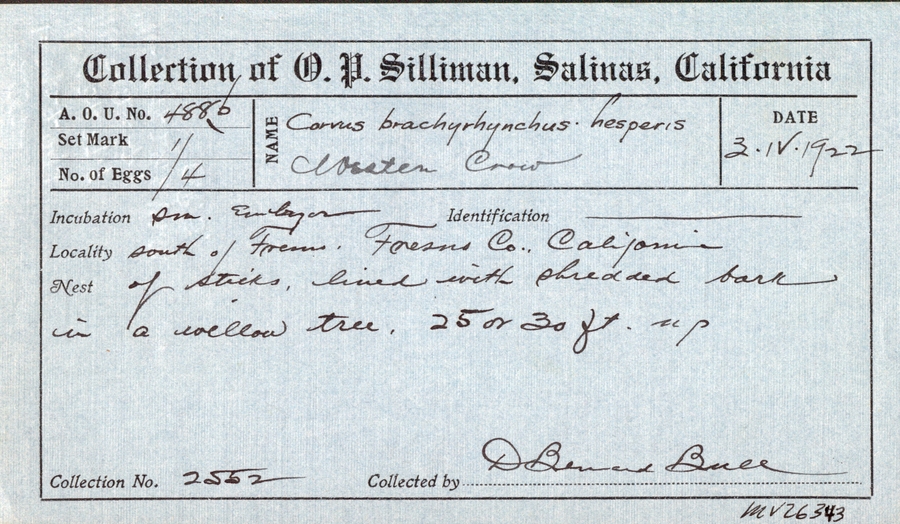 Collection of O. P. Silliman, Salinas, California
A. O. U. No. 488b
Set Mark 1/4
No. of Eggs
NAME Corvus brachyrhynchus hesperis
Western Crow
DATE
3.IV.1922
Incubation sm. Embryos
Identification
Locality south of Fresno. Fresno Co., California
Nest of sticks, lined with shredded bark
in a willow tree, 25 or 30 ft. up
Collection No. 2552
Collected by D Bernard Bull
MV26343